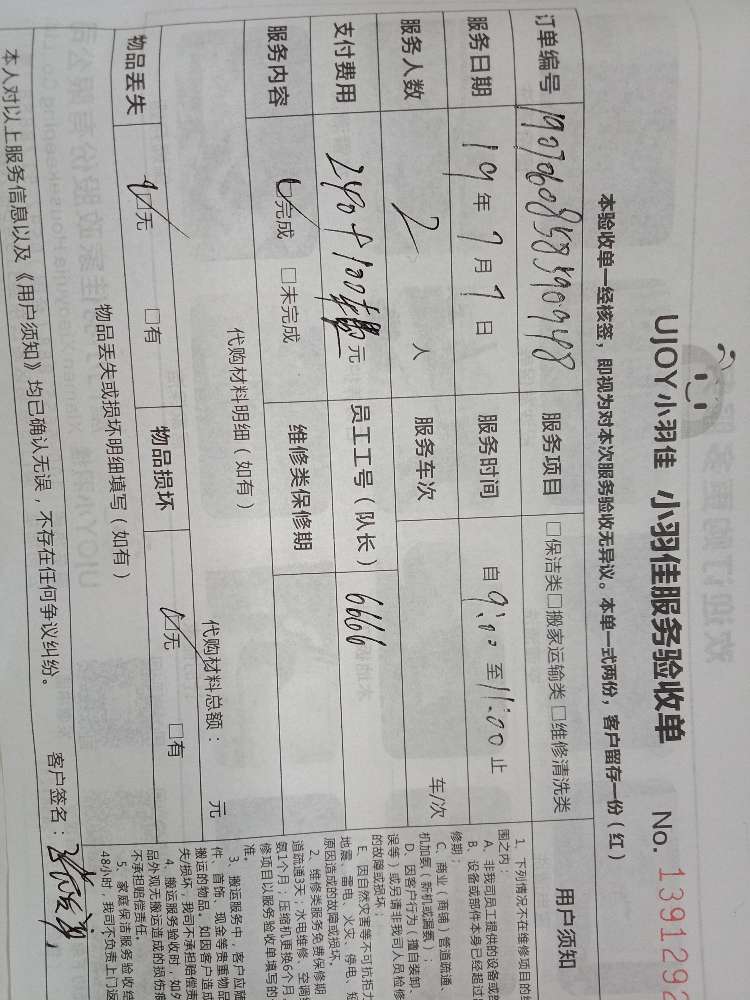 UJOY小羽佳 小羽佳服务验收单 No. 1391292
本验收单一经核签，即视为对本次服务验收无异议。本单一式两份，客户留存一份（红）
订单编号 服务项目 □保洁类□搬家运输类□维修清洗类
服务日期 19年7月7日 服务时间 自9:00至11:00止
服务人数 2人 服务车次 车/次
支付费用 240+100 元 员工工号（队长） 6666
服务内容 □完成 □未完成 维修类保修期
代购材料明细（如有） 代购材料总额： 元
物品丢失 □无 □有 物品损坏 □无 □有
物品丢失或损坏明细填写（如有）
本人对以上服务信息以及《用户须知》均已确认无误，不存在任何争议纠纷。 客户签名：
用户须知
1、下列情况不在维修项目的
围之内：
A、非我司员工提供的设备或
B、设备或部件本身已经超过
修期；
C、商业（商铺）管道疏通、
机加氨（新机或漏氨）；
D、因客户行为：擅自装卸、
误等）或另请非我司人员检修
的故障或损坏；
E、因自然灾害等不可抗拒力
地震、雷电、火灾、停电、
原因造成的故障或损坏。
2、维修类服务免费保修期
道疏通3天；水电维修、空调
氨1个月；压缩机更换6个月
修项目以服务验收单填写的
准。
3、搬运服务中，客户应随
件、首饰、现金等贵重物品
搬运的物品。如因客户造成
失/损坏，我司不承担赔偿责
4、搬运服务验收时，如外
品外观无搬运造成的损伤痕
不承担赔偿责任。
5、家庭保洁服务验收经
48小时，我司不负责上门返